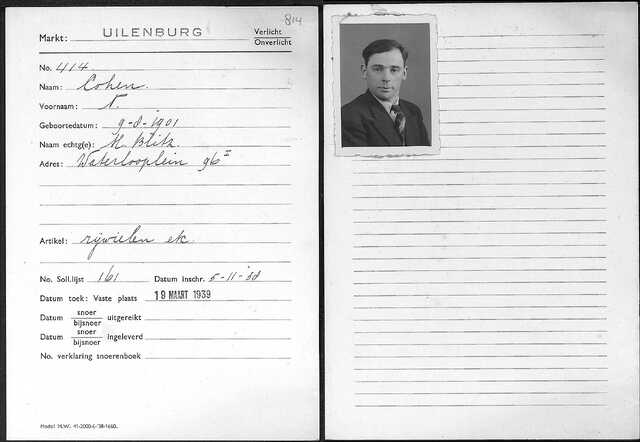 814
Markt: UILENBURG Verlicht
Onverlicht
No. 414
Naam: Cohen.
Voornaam: N.
Geboortedatum: 9-8-1901
Naam echtg(e): M. Blitz
Adres: Waterlooplein 96 I
Artikel: rijwielen ek.
No. Soll.lijst 161 Datum Inschr. 5-11-38
Datum toek: Vaste plaats 18 MAART 1939
Datum snoer
bijsnoer uitgereikt
Datum snoer
bijsnoer ingeleverd
No. verklaring snoerenboek
Model M.W. 41-2000-6-'38-1660.